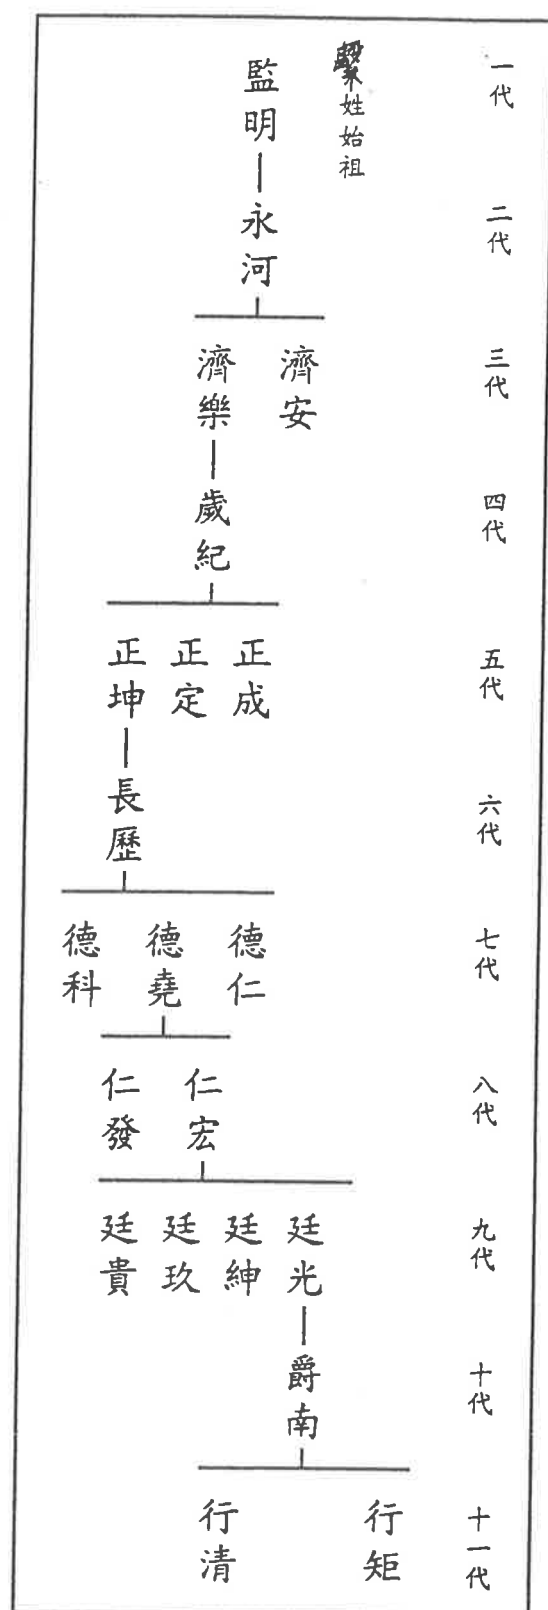 一代
姓始祖
監明
二代
永河
三代
濟安
濟樂
四代
歲紀
五代
正成
正定
正坤
六代
長歷
七代
德仁
德堯
德科
八代
仁宏
仁發
九代
廷光
廷紳
廷玖
廷貴
十代
爵南
十一代
行矩
行清